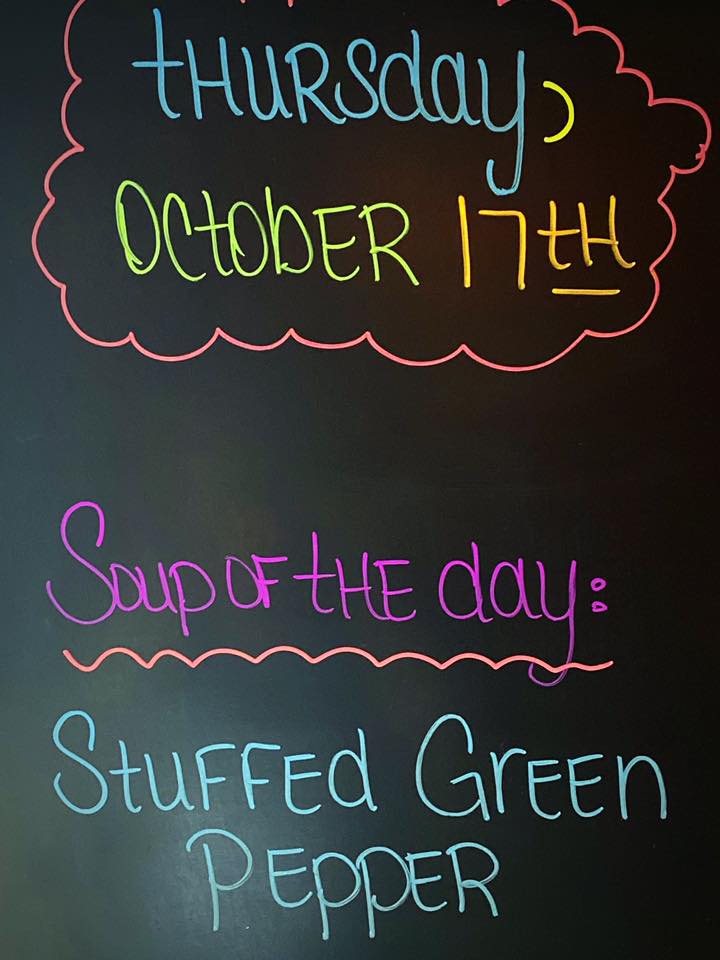 tHURSday,
OCtObER 17tH
SoupOF tHE day:
StuFFEd GrEEn
PEppER